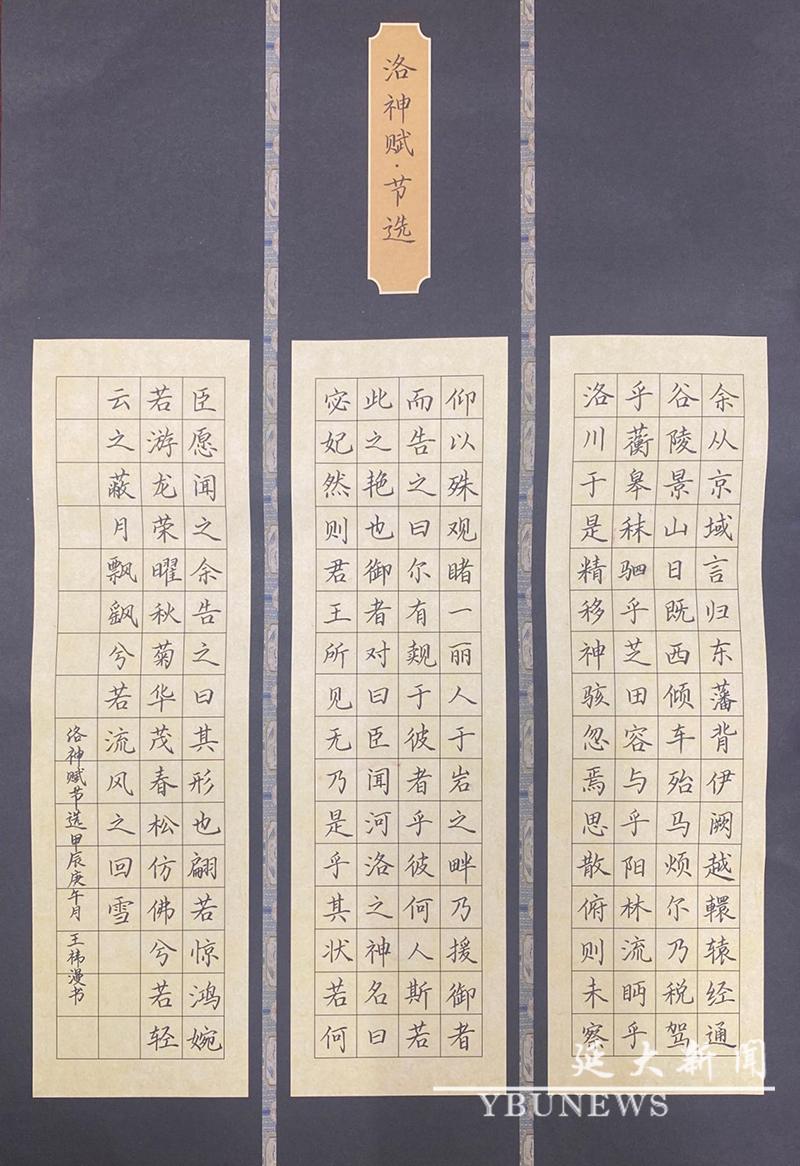 洛神赋·节选
余从京域言归东藩背伊阙越轘辕经通
谷陵景山日既西倾车殆马烦尔乃税驾
乎蘅皋秣驷乎芝田容与乎阳林流眄乎
洛川于是精移神骇忽焉思散俯则未察
仰以殊观睹一丽人于岩之畔乃援御者
而告之曰尔有觌于彼者乎彼何人斯若
此之艳也御者对曰臣闻河洛之神名曰
宓妃然则君王所见无乃是乎其状若何
臣愿闻之余告之曰其形也翩若惊鸿婉
若游龙荣曜秋菊华茂春松仿佛兮若轻
云之蔽月飘飖兮若流风之回雪
洛神赋节选甲辰庚午月 王祎漫书
延大新闻
YBUNEWS